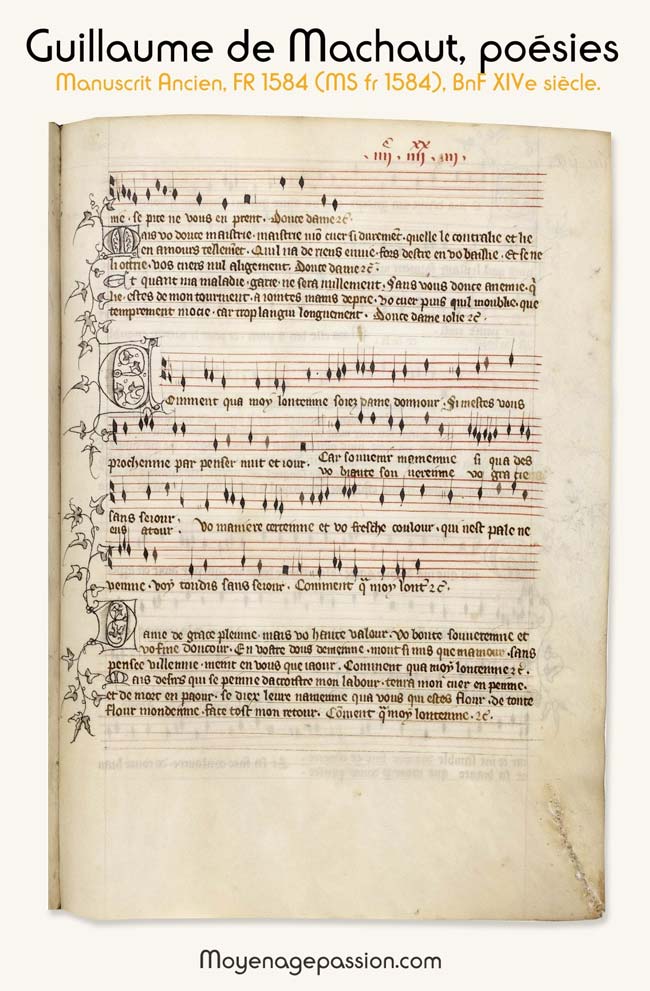 Guillaume de Machaut, poésies
Manuscrit Ancien, FR 1584 (MS fr 1584), BnF XIVe siècle.
me · se pite ne vous en prent · Douce dame
ais vo douce maistrie · maistrie mon cuer si durement · quelle le contralie et lie
en amours tellement · Quil na de riens envie · fors destre en vo baillie · Et se ne
li ottrie · vos cuers nul aligement · Douce dame
Et quant ma maladie · garie · ne sera nullement · Sans vous douce anemie · q̄
lie · estes de mon tourment · a iointes mains deprie · vo cuer puis quil moublie · que
temprement mocie · car trop langui longuement · Douce dame iolie
Comment qua moy lonteinne soiez dame donnour · Si mestes vous
procheinne par penser nuit et iour · Car souvenir mamenne si qua des
vo biaute souvereinne vo gracieus
sans seiour ·
eus atour · Vo maniere certeinne et vo fresche coulour · qui nest pale ne
veinne · voy toudis sans seiour · Comment q̄ moy lont
Dame de grace pleinne · mais vo haute valour · vo bonte souvereinne et
vo fine doucour · En vostre dous demeinne · mont si mis que mamour · sans
pensee villeinne · meint en vous que iaour · Comment qua moy lonteinne
Mais desirs qui se peinne dacroistre mon labour · tenra mon cuer en peinne ·
et de mort en paour · se diex leure namenne qua vous qui estes flour · de toute
flour mondeinne · face tost mon retour · Coment q̄ moy lonteinne ·
Moyenagepassion.com